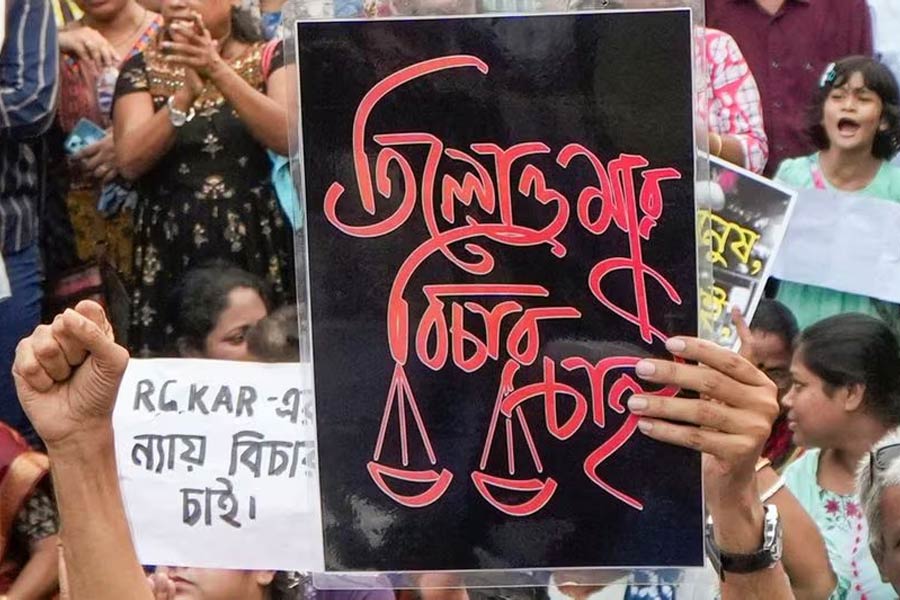 তিলোত্তমার
বিচার
চাই
R.G. KAR -এর
ন্যায় বিচার
চাই।